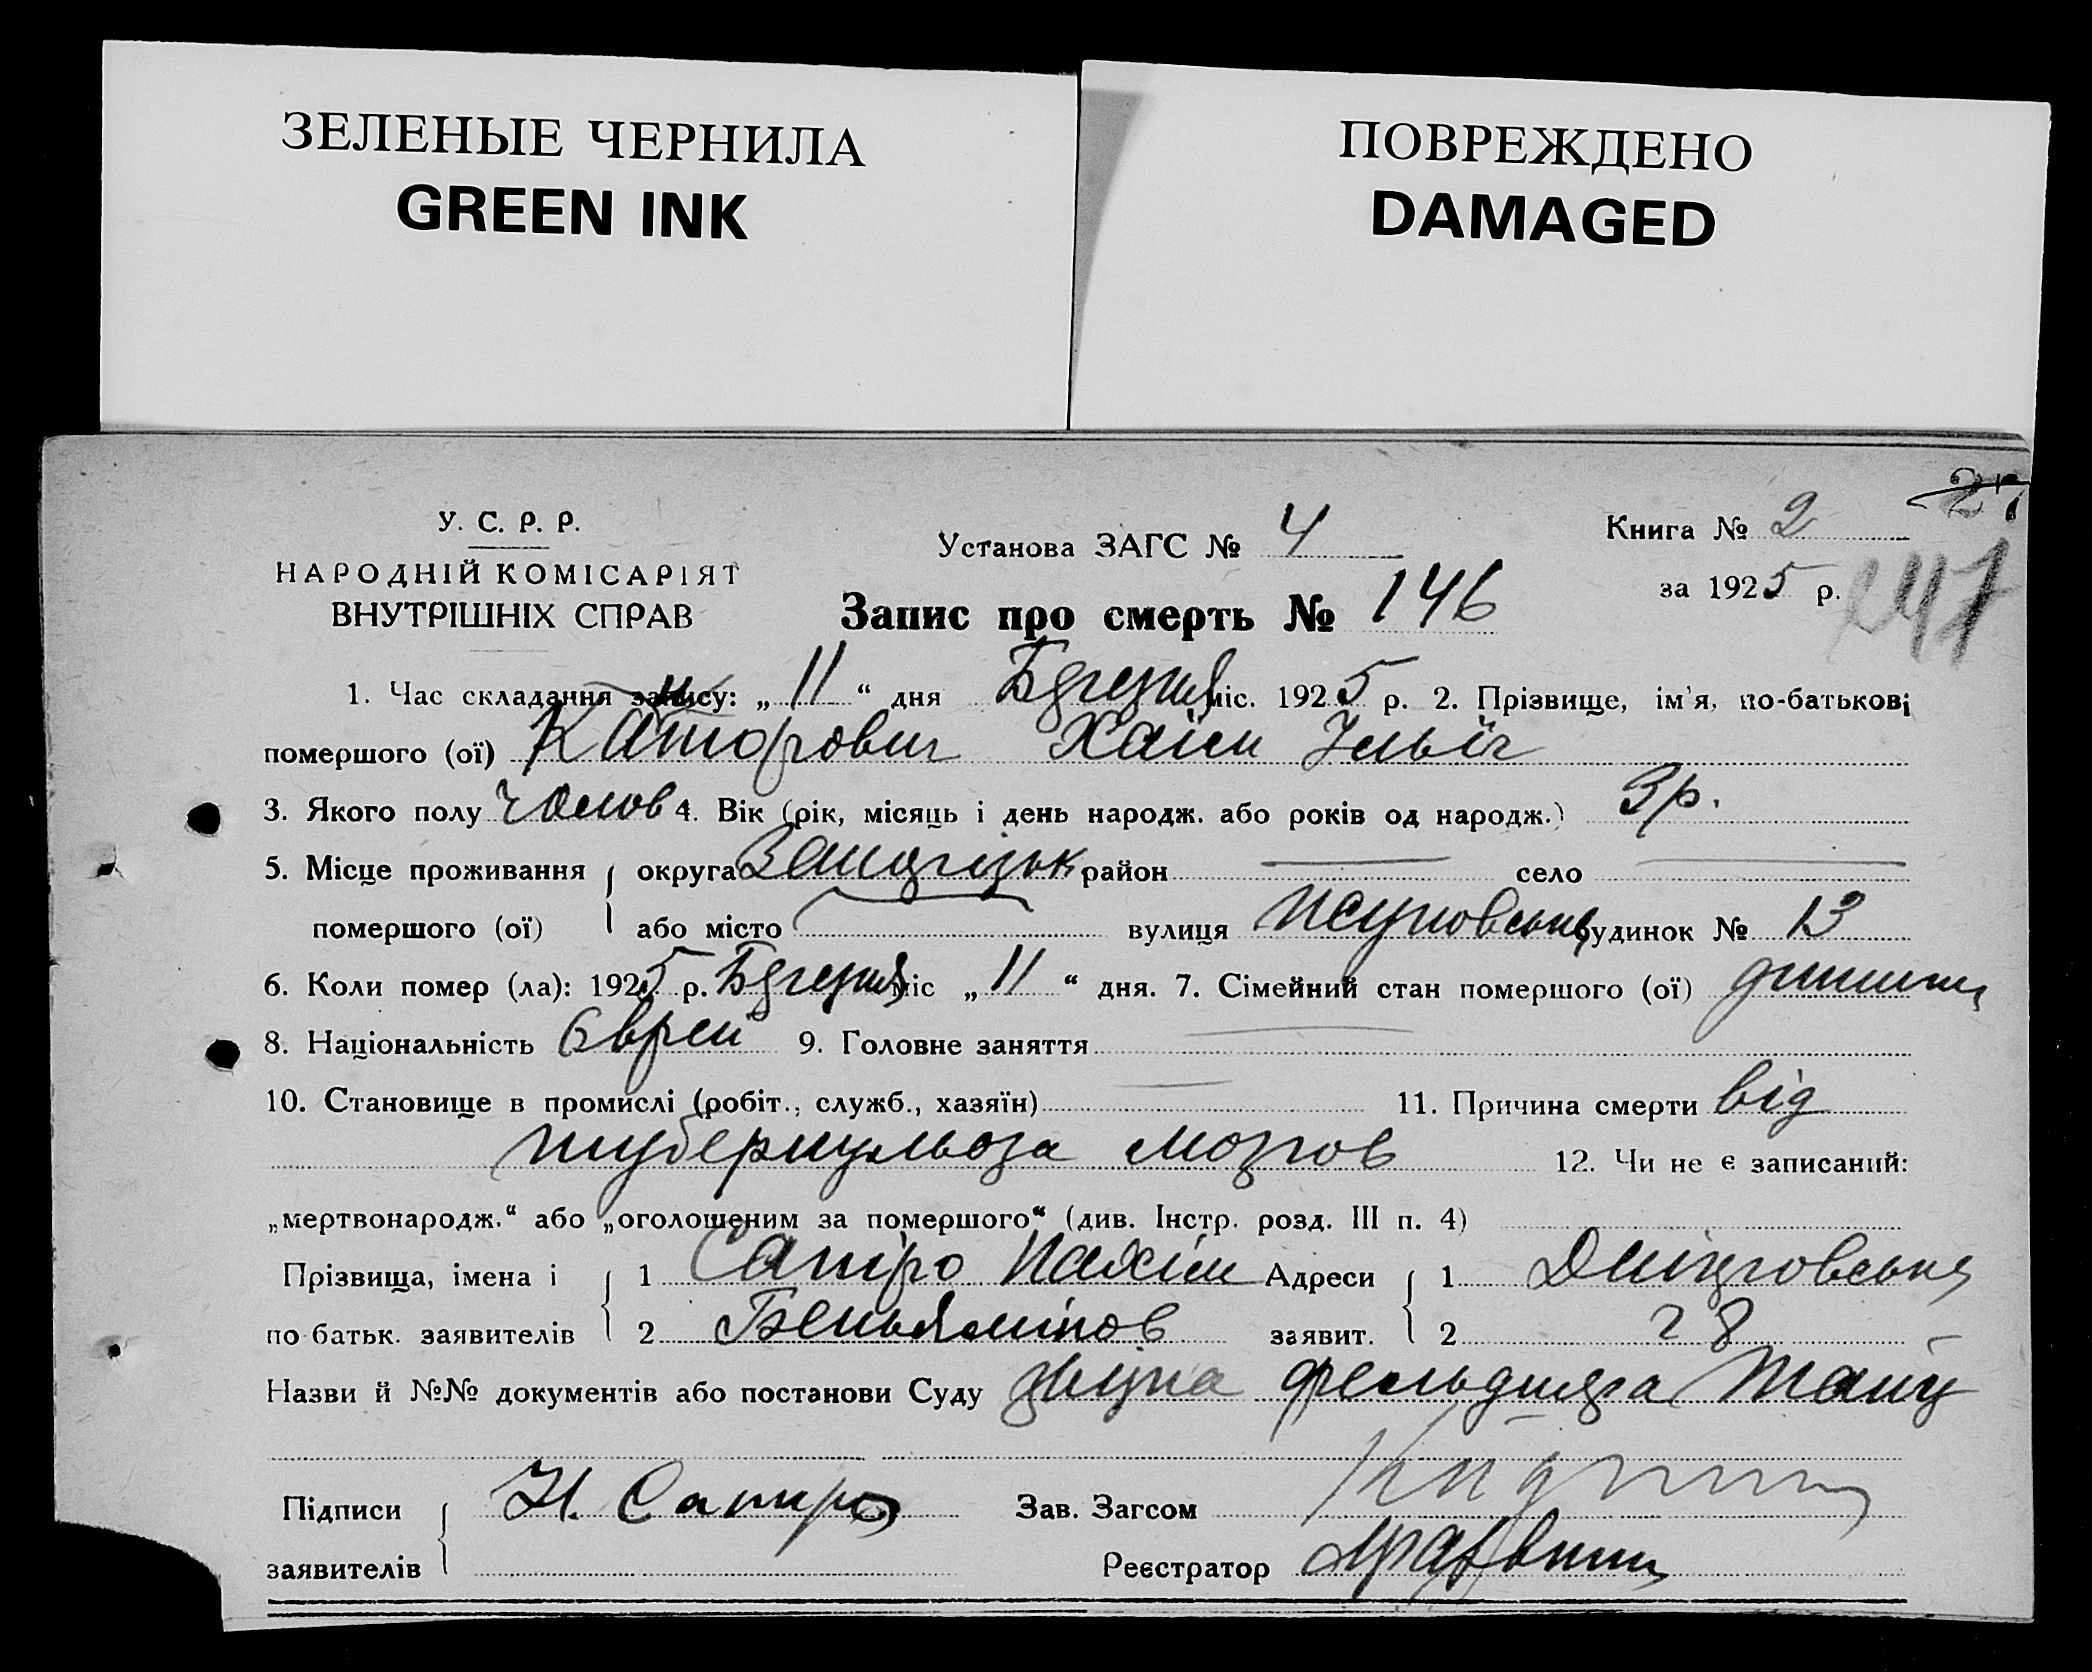 ЗЕЛЕНЫЕ ЧЕРНИЛА
GREEN INK
ПОВРЕЖДЕНО
DAMAGED
У. С. Р. Р.
НАРОДНІЙ КОМІСАРІЯТ
ВНУТРІШНІХ СПРАВ
Установа ЗАГС № 4
Книга № 2
за 1925 р.
Запис про смерть № 146
1. Час складання запису: „ 11 “ дня Березня міс. 1925 р. 2. Прізвище, ім'я, по-батькові
помершого (ої) Канторович Хаім Ільіч
3. Якого полу чолов 4. Вік (рік, місяць і день народж. або років од народж.) 3 р.
5. Місце проживання округа район село
помершого (ої) або місто вулиця будинок № 13
6. Коли помер (ла): 1925 р. Березня міс „ 11 “ дня. 7. Сімейний стан помершого (ої) дитина
8. Національність Єврей 9. Головне заняття
10. Становище в промислі (робіт., служб., хазяїн) 11. Причина смерти від
туберкульоза мозгов 12. Чи не є записаний:
„мертвонародж.“ або „оголошеним за помершого“ (див. Інстр. розд. III п. 4)
Прізвища, імена і 1 Сапіро Нахім Адреси 1
по батьк. заявителів 2 Беньямінов заявит. 2 28
Назви й №№ документів або постанови Суду фельдшера
Підписи Н. Сапиро Зав. Загсом
заявителів Реєстратор